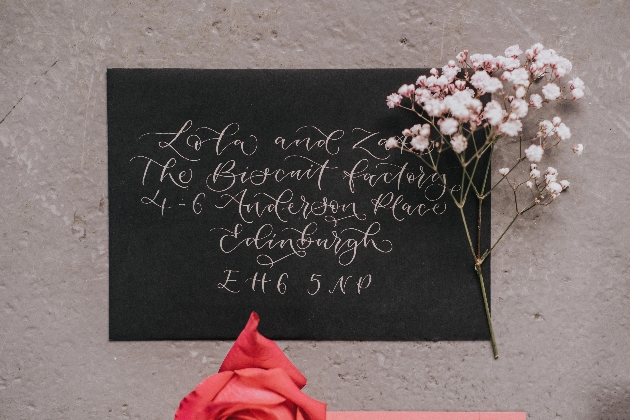 Lola and
The Biscuit factory,
4-6 Anderson Place
Edinburgh
EH6 5NP